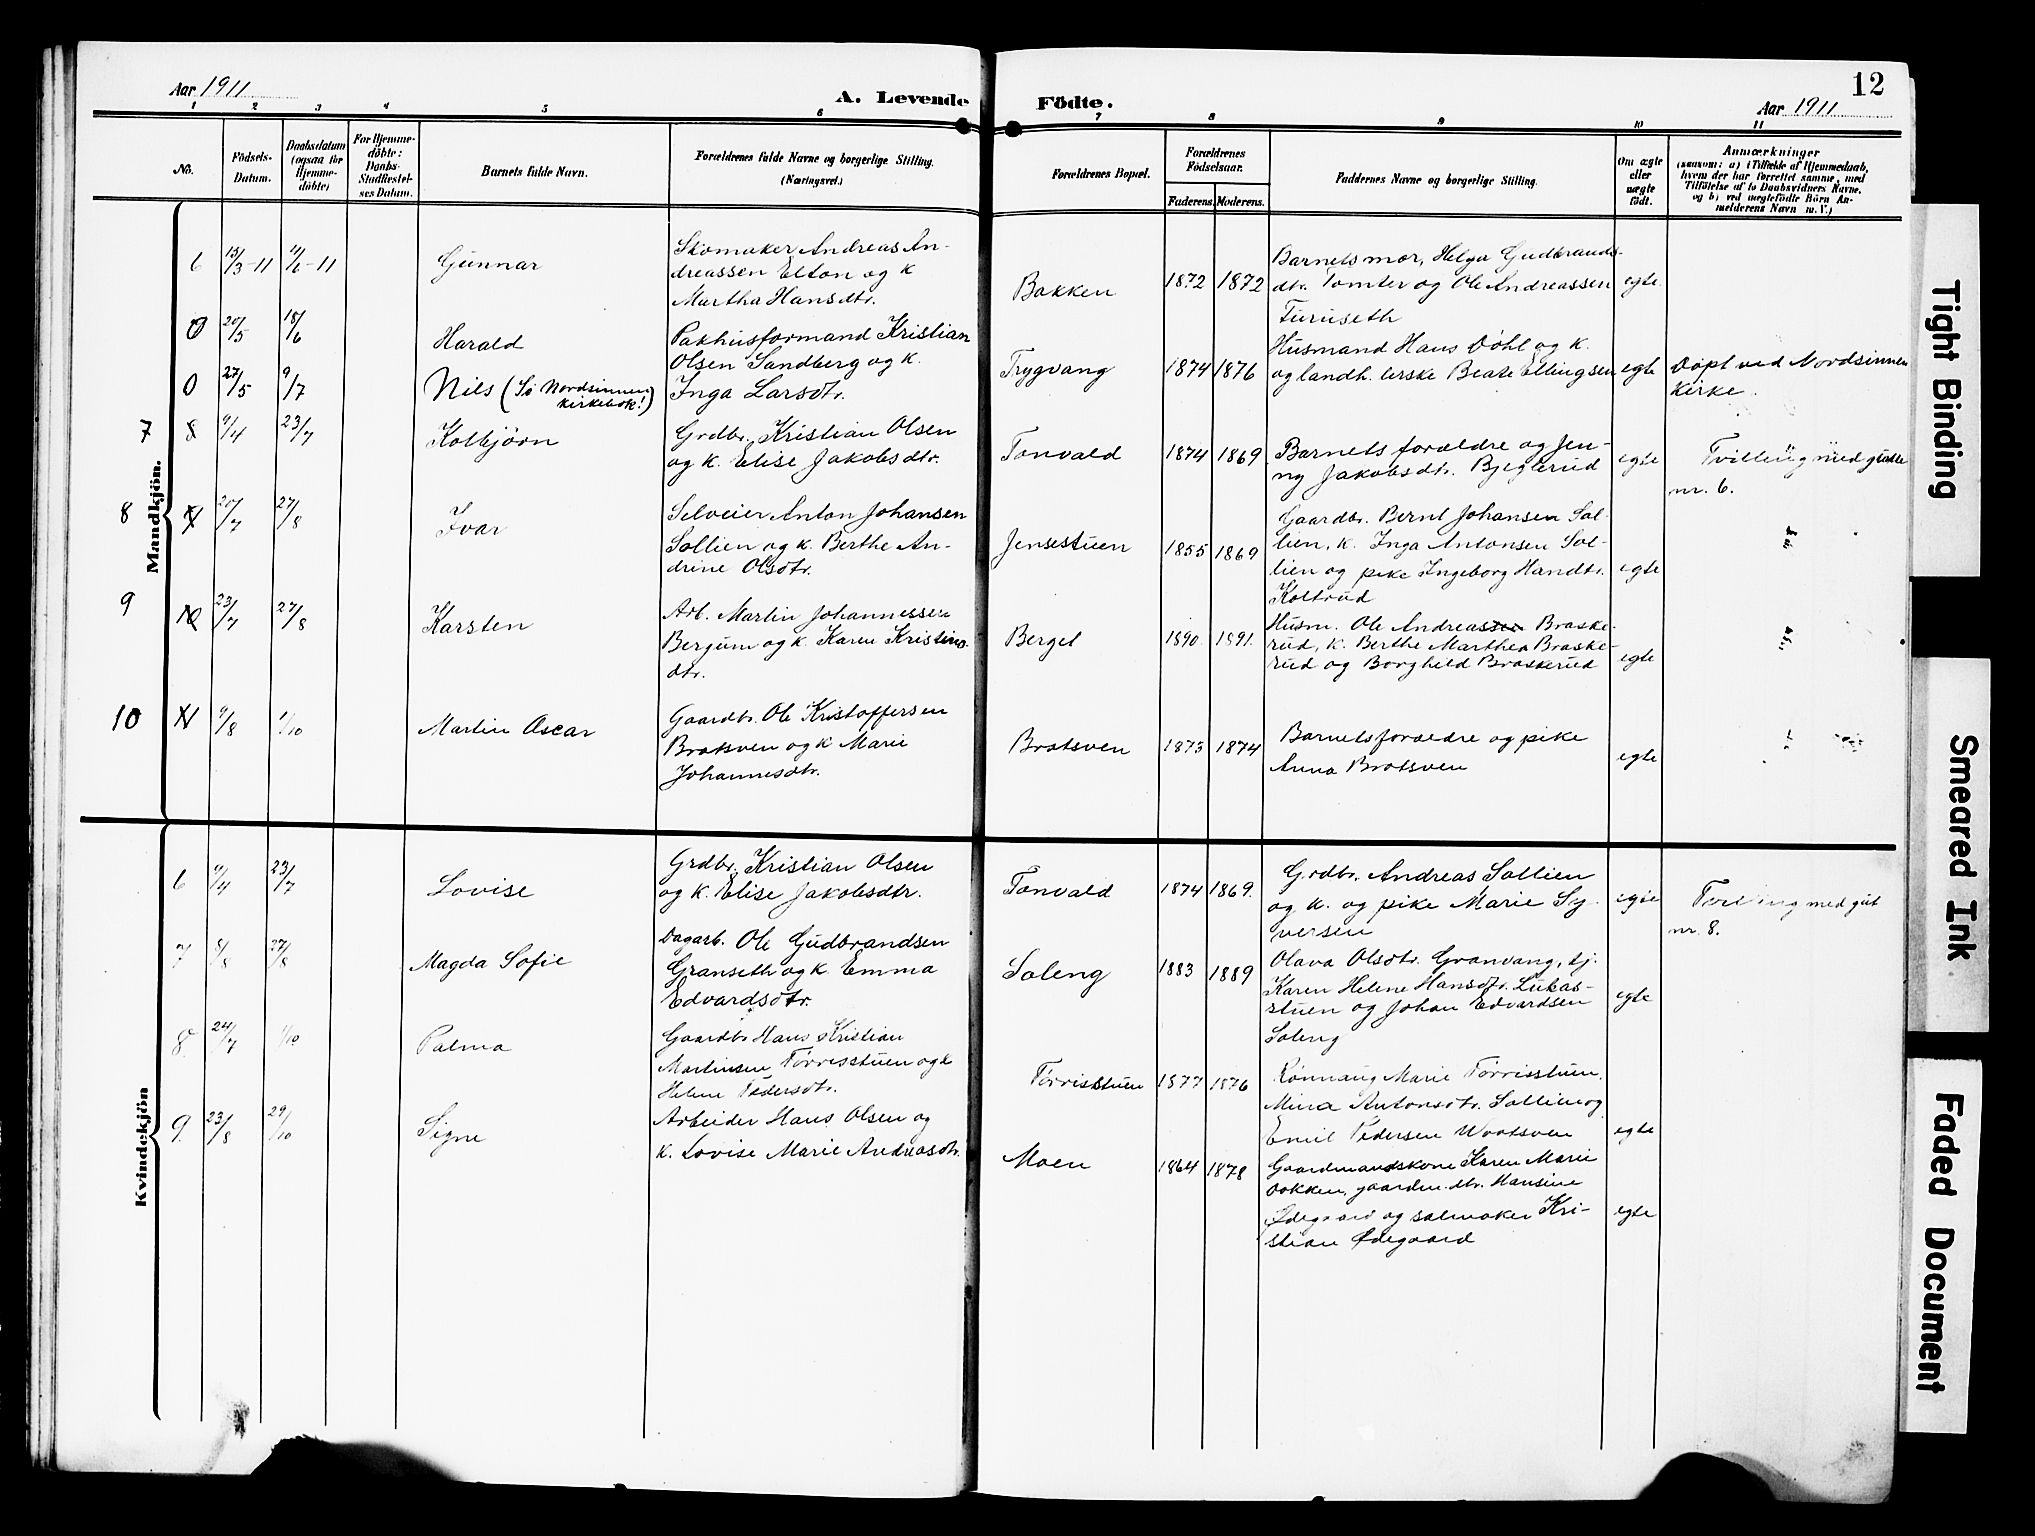 Aar 1911
A. Levende Födte.
12
Aar 1911
1 2 3 4 5 6 7 8 9 10 11
No.
Födsels-
Datum.
Daabsdatum
(ogsaa for
Hjemme-
döbte)
For Hjemme-
döbte:
Daabs-
Stadfæstel-
ses Datum.
Barnets fulde Navn.
Forældrenes fulde Navne og borgerlige Stilling.
(Næringsvei.)
Forældrenes Bopæl.
Forældrenes
Födselsaar.
Faderens.
Moderens.
Faddernes Navne og borgerlige Stilling.
Om ægte
eller
uægte
födt.
Anmærkninger
(saasom: a) i Tilfælde af Hjemmedaab,
hvem der har forrettet samme, med
Tilföielse af to Daabsvidners Navne,
og b) ved uegtefödte Börn An-
melderens Navn m. V.)
Mandkjön.
6 13/3-11 11/6-11 Gunnar
Skomaker Andreas An-
dreassen Elton og k
Martha Hansdtr.
Bakken 1872 1872
Barnets mor, Helga Gudbrands-
dtr. Tomter og Ole Andreassen
Turuseth
egte
0 20/5 18/6 Harald
Pakhusformand Kristian
Olsen Sandberg og k.
Inga Larsdtr.
Trygvang 1874 1876
Husmand Hans Döhl og k.
og landh. lerske Beate Ellingsen
egte
Döpt ved Nordsinnen
Kirke.
0 27/5 9/7 Nils (Se Nordsinnen
kirkebok!)
7 8 9/4 23/7 Kolbjörn
Grdbr. Kristian Olsen
og k. Elise Jakobsdtr.
Tonvald 1874 1869
Barnets forældre og Jen-
ny Jakobsdtr. Bjeglerud
egte
Tvilling med
nr. 6.
8 20/7 27/8 Ivar
Selveier Anton Johansen
Sollien og k. Berthe An-
drine Olsdtr.
Jensestuen 1855 1869
Gaardbr. Bernt Johansen Sol-
lien, k. Inga Antonsen Sol-
lien og pike Ingeborg Handtr.
Koltrud
egte
9 10 23/7 27/8 Karsten
Arb. Martin Johannessen
Bergum og k. Karen Kristians-
dtr.
Berget 1890 1891
Husm. Ole Andreassen Braske-
rud, k. Berthe Marthea Braske-
rud og Borghild Braskerud
egte
10 9/8 1/10 Martin Oscar
Gaardbr. Ole Kristoffersen
Bratsven og k Marie
Johannesdtr.
Bratsven 1873 1874
Barnets forældre og pike
Anna Bratsven
egte
Kvindekjön
6 9/4 23/7 Lovise
Grdbr. Kristian Olsen
og k. Elise Jakobsdtr.
Tonvald 1874 1869.
Grdbr. Andreas Sollien
og k. og pike Marie Sy-
versen
egte
Tvilling med gut
nr. 8.
7 8/8 27/8 Magda Sofie
Dagarb. Ole Gudbrandsen
Granseth og k. Emma
Edvardsdtr.
Soleng 1883 1889
Olava Olsdtr. Granvang, tj.
Karen Helene Hansdtr. Lukas-
stuen og Johan Edvardsen
Soleng
egte
8. 24/7 1/10 Palma
Gaardbr Hans Kristian
Martinsen Törrisstuen og k
Helene Pedersdtr.
Törrisstuen 1877 1876
Rönnaug Marie Törrisstuen,
Mina Antonsdtr. Sollien og
Emil Pedersen
egte
9. 23/8 29/10 Signe
Arbeider Hans Olsen og
k. Lovise Marie Andreasdtr.
Moen 1864 1878
Gaardmandskone Karen Marie
Bakken, gaardm.dtr. Hansine
Ödegaard og salmaker Kri-
stian Ödegaard
egte
Tight Binding
Smeared Ink
Faded Document